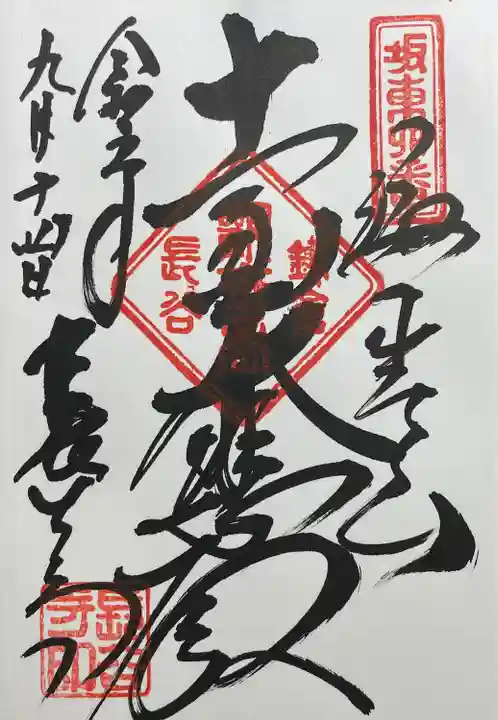 坂東四番
海光山
十一面大悲殿
鎌倉
長谷
九月十四日
長谷寺
長谷寺印